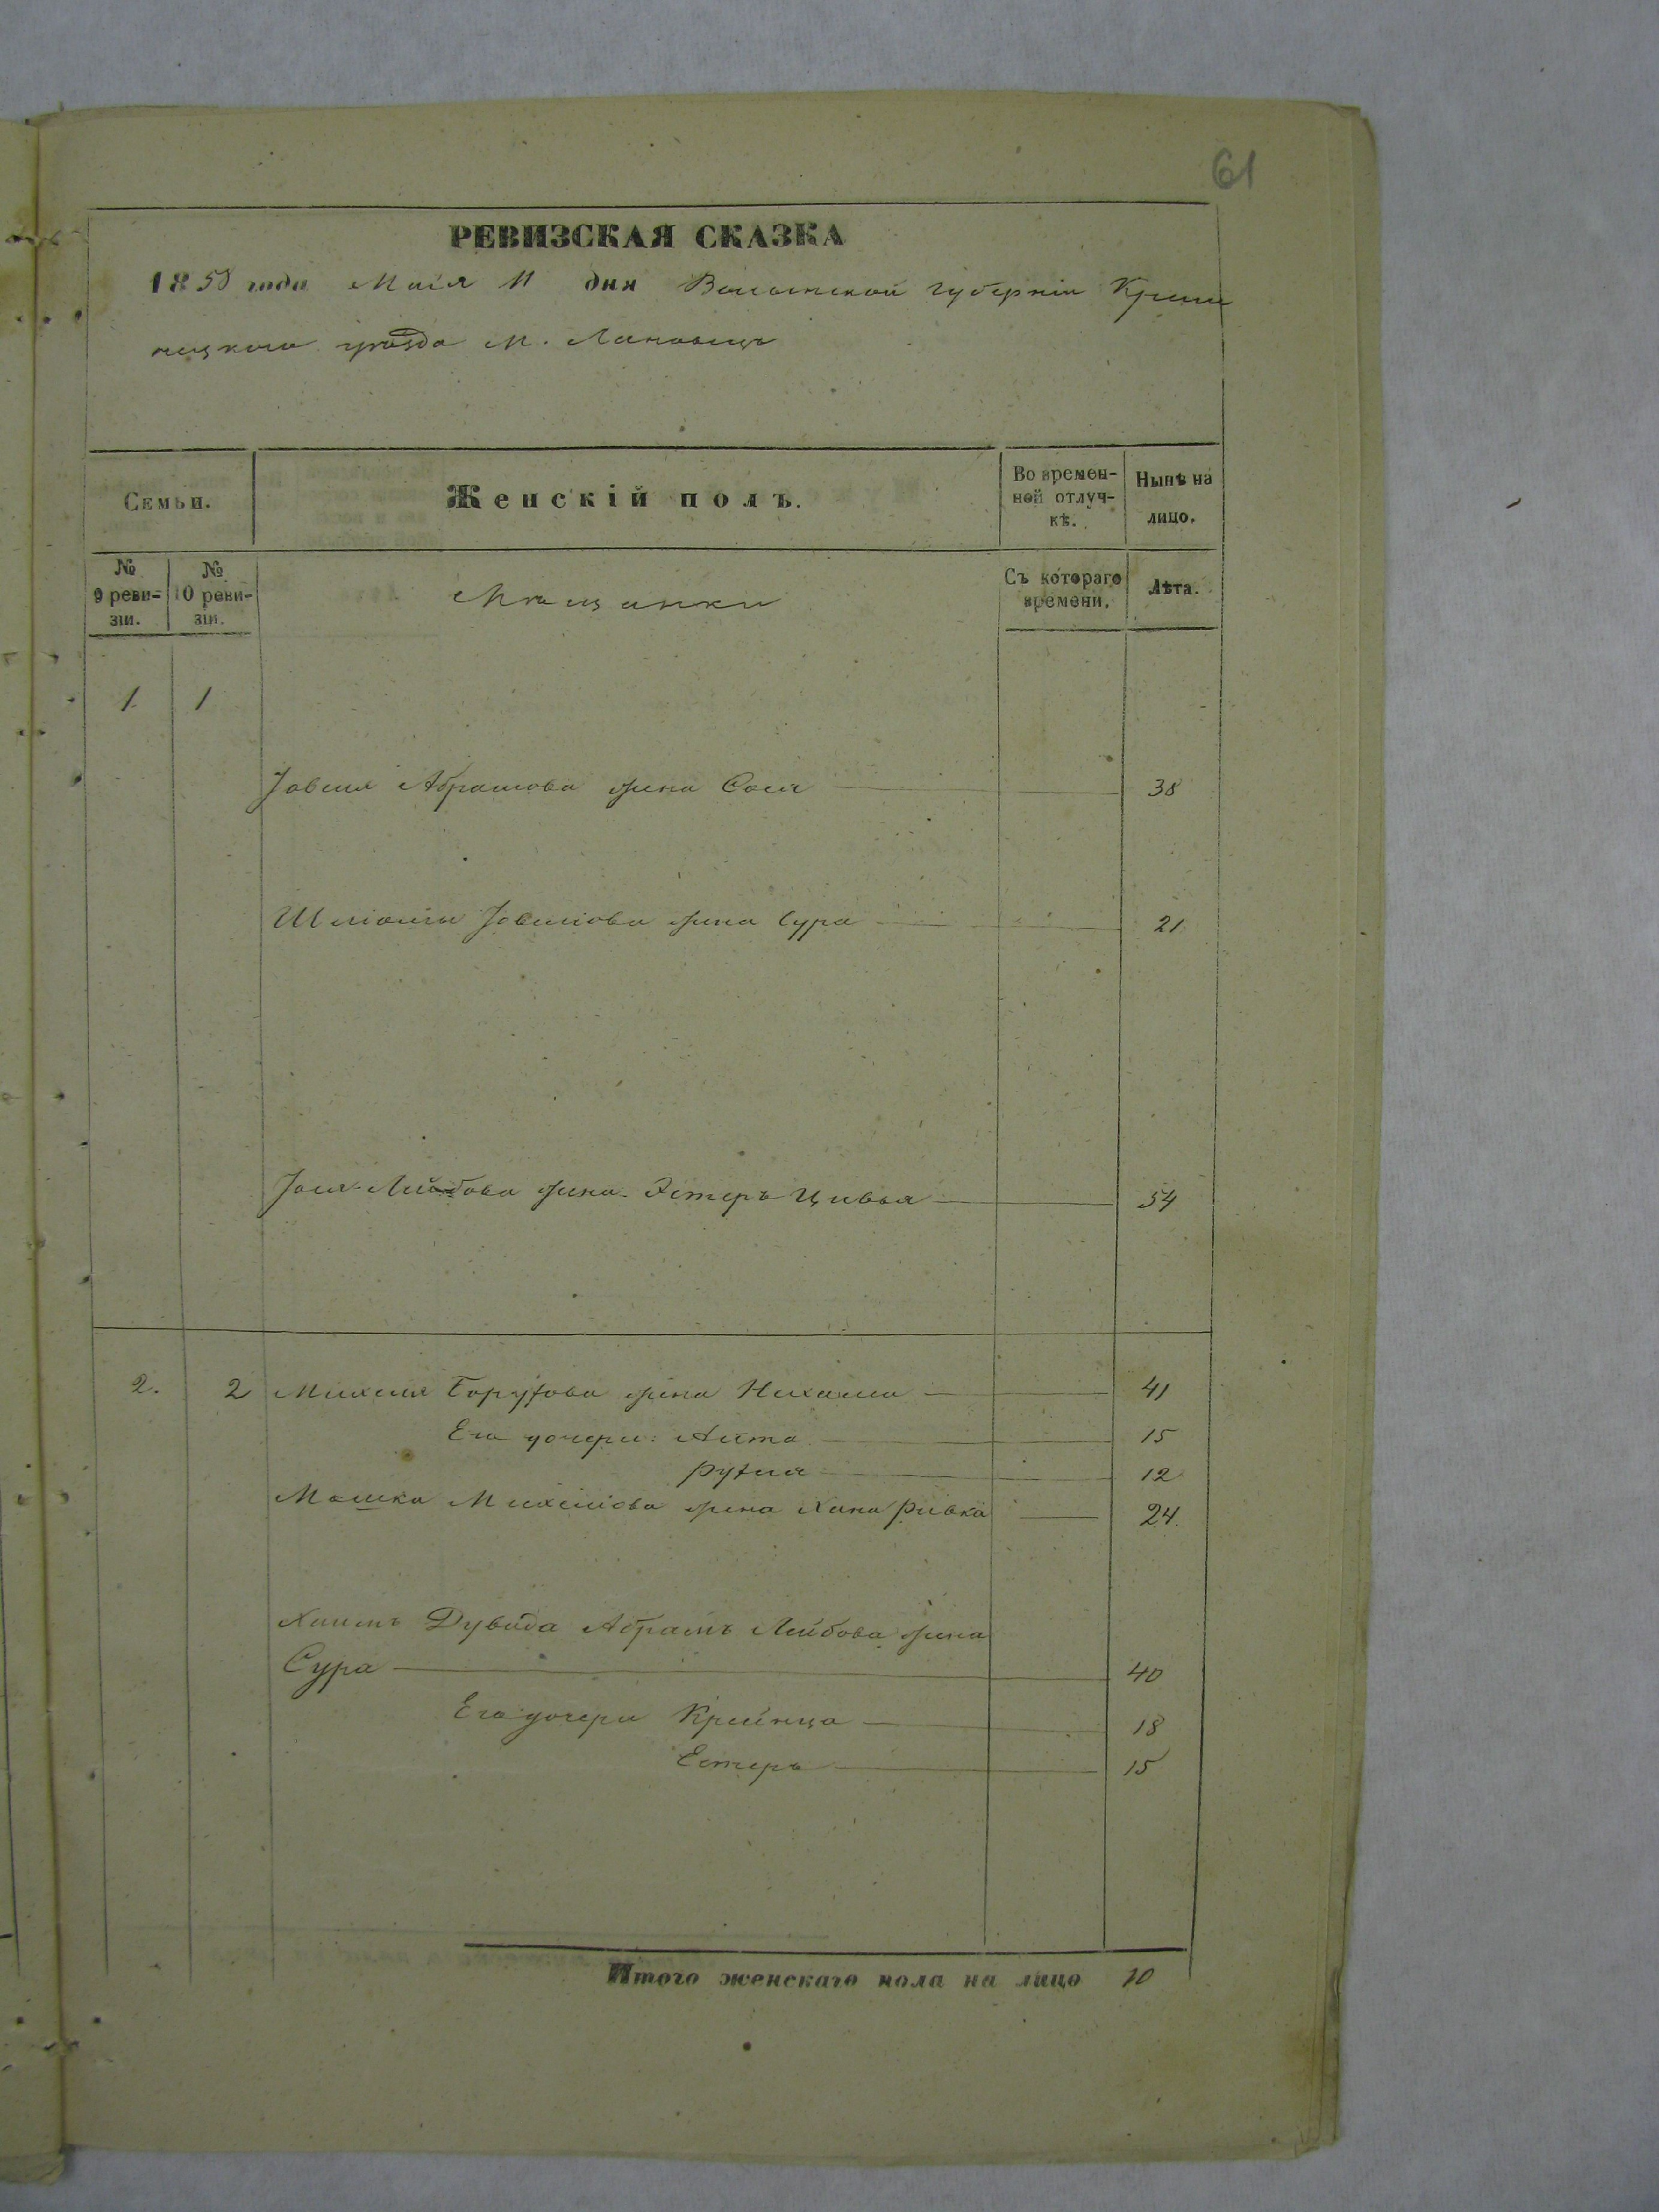 61
РЕВИЗСКАЯ СКАЗКА
1858 года Маія 11 дня Волынской губерніи Креме
нецкого уѣзда м. Лановецъ
Семьи.
Женскій полъ.
Во времен-
ной отлуч-
кѣ.
Нынѣ на
лицо.
№
9 реви-
зіи.
№
10 реви-
зіи.
Мѣщанки
Съ котораго
времени.
Лѣта.
1 1
Іовеля Абрамова жена Сося 38
Шліоми Іовеліова жена Сура 21
Іося Лейбова жена Эстеръ Цивья 54
2. 2 Михеля Борухова жена Нехама 41
Его дочери: 15
Рухля 12
Мошка Михеліова жена Хана Ривка 24
Хаимъ Дувида Абрамъ Лейбова жена
Сура 40
Его дочери Крейнца 18
Естеръ 15
Итого женскаго пола на лицо 10